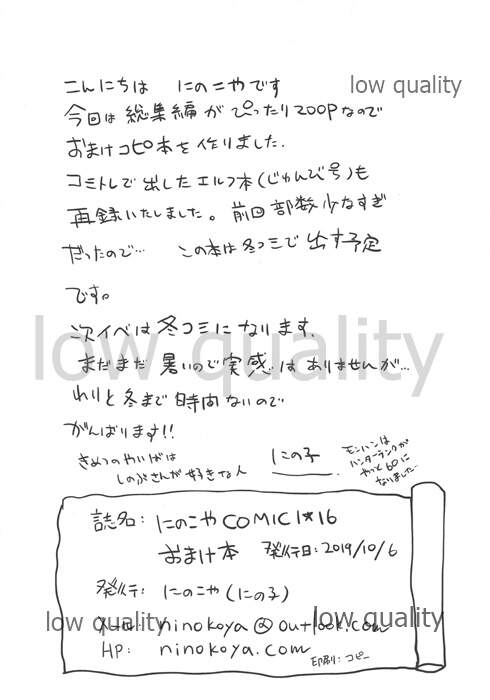 こんにちは にのこやです
low quality
今回は総集編がぴったり200Pなので
おまけコピ本を作りました.
コミトレで出したエルフ本(じゅんび号)も
再録いたしました。前回部数少なすぎ
だったので… この本は冬コミで出す予定
です。
low quality
次イベは冬コミになります.
まだまだ暑いので実感はありませんが…
わりと冬まで時間ないので
がんばります!!
きめつのやいばは
しのぶさんが好きな人
にの子
モンハンは
ハンターランクが
やっと60に
なりました
誌名: にのこや COMIC1★16
おまけ本 発行日:2019/10/6
発行: にのこや(にの子)
low quality
low quality
メール: ninokoya@outlook.com
HP: ninokoya.com
印刷:コピー